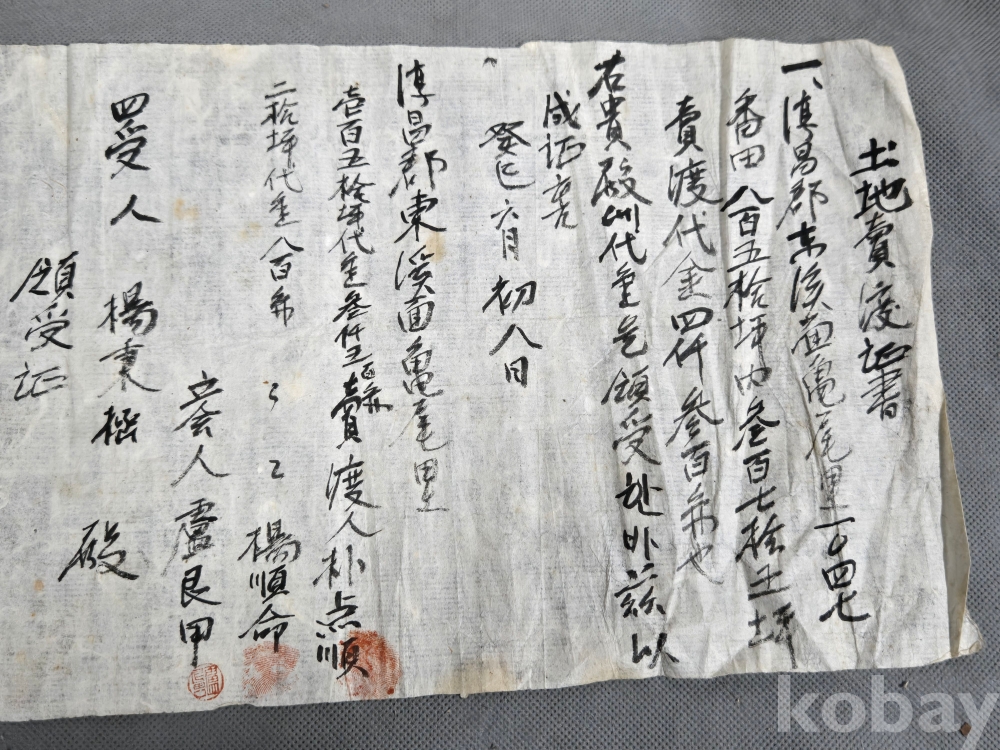 土地賣渡证書
一、淳昌郡東溪面龜尾里一〇四七
番田八百五拾坪内叁百七拾五坪
賣渡代金四仟叁百弗也
右貴殿세代金을領受한바玆以
成证
癸巳六月初八日
淳昌郡東溪面龜尾里
壱百五拾坪代金叁仟五百弗 賣渡人 朴点順
二拾坪代金八百弗 〃 〃 楊順命
立会人 盧良甲
四受人 楊秉 殿
領受证
kobay